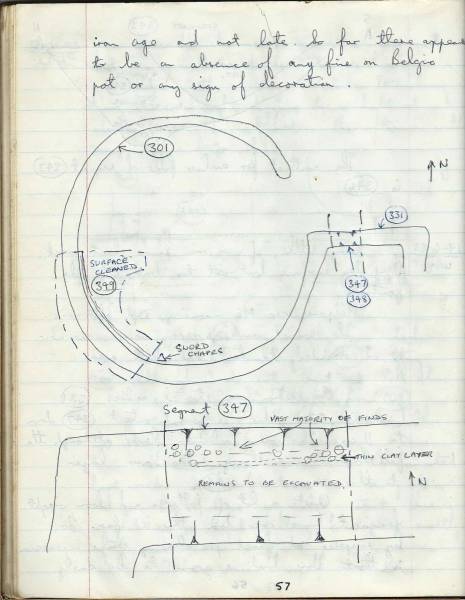 iron age and not late. So far there appears
to be an absence of any fine or Belgic
pot or any sign of decoration.
301
N
331
SURFACE
CLEANED
349
347
348
SWORD
CHAPES
Segment 347
VAST MAJORITY OF FINDS
THIN CLAY LAYER
REMAINS TO BE EXCAVATED.
N
57